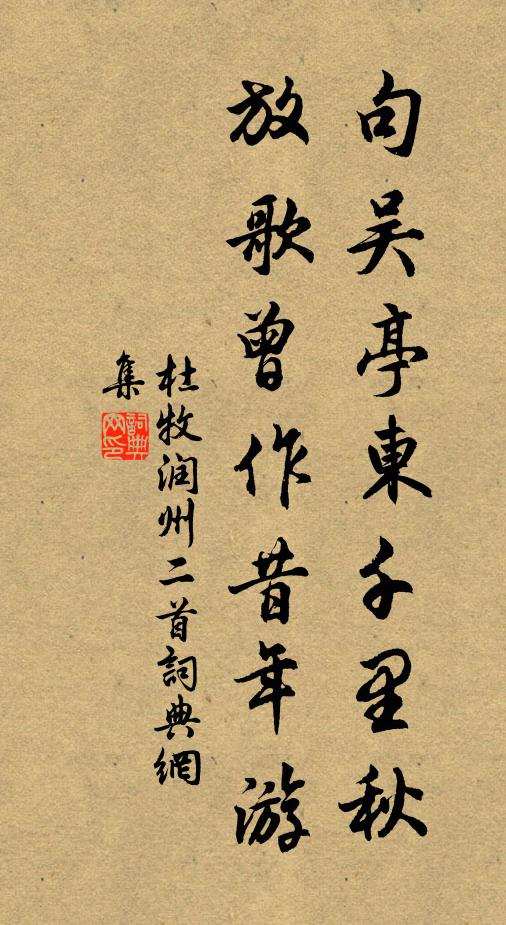 句吴亭東千里秋
放歌曾作昔年游
杜牧润州二首詞典網
集
詞典
网印